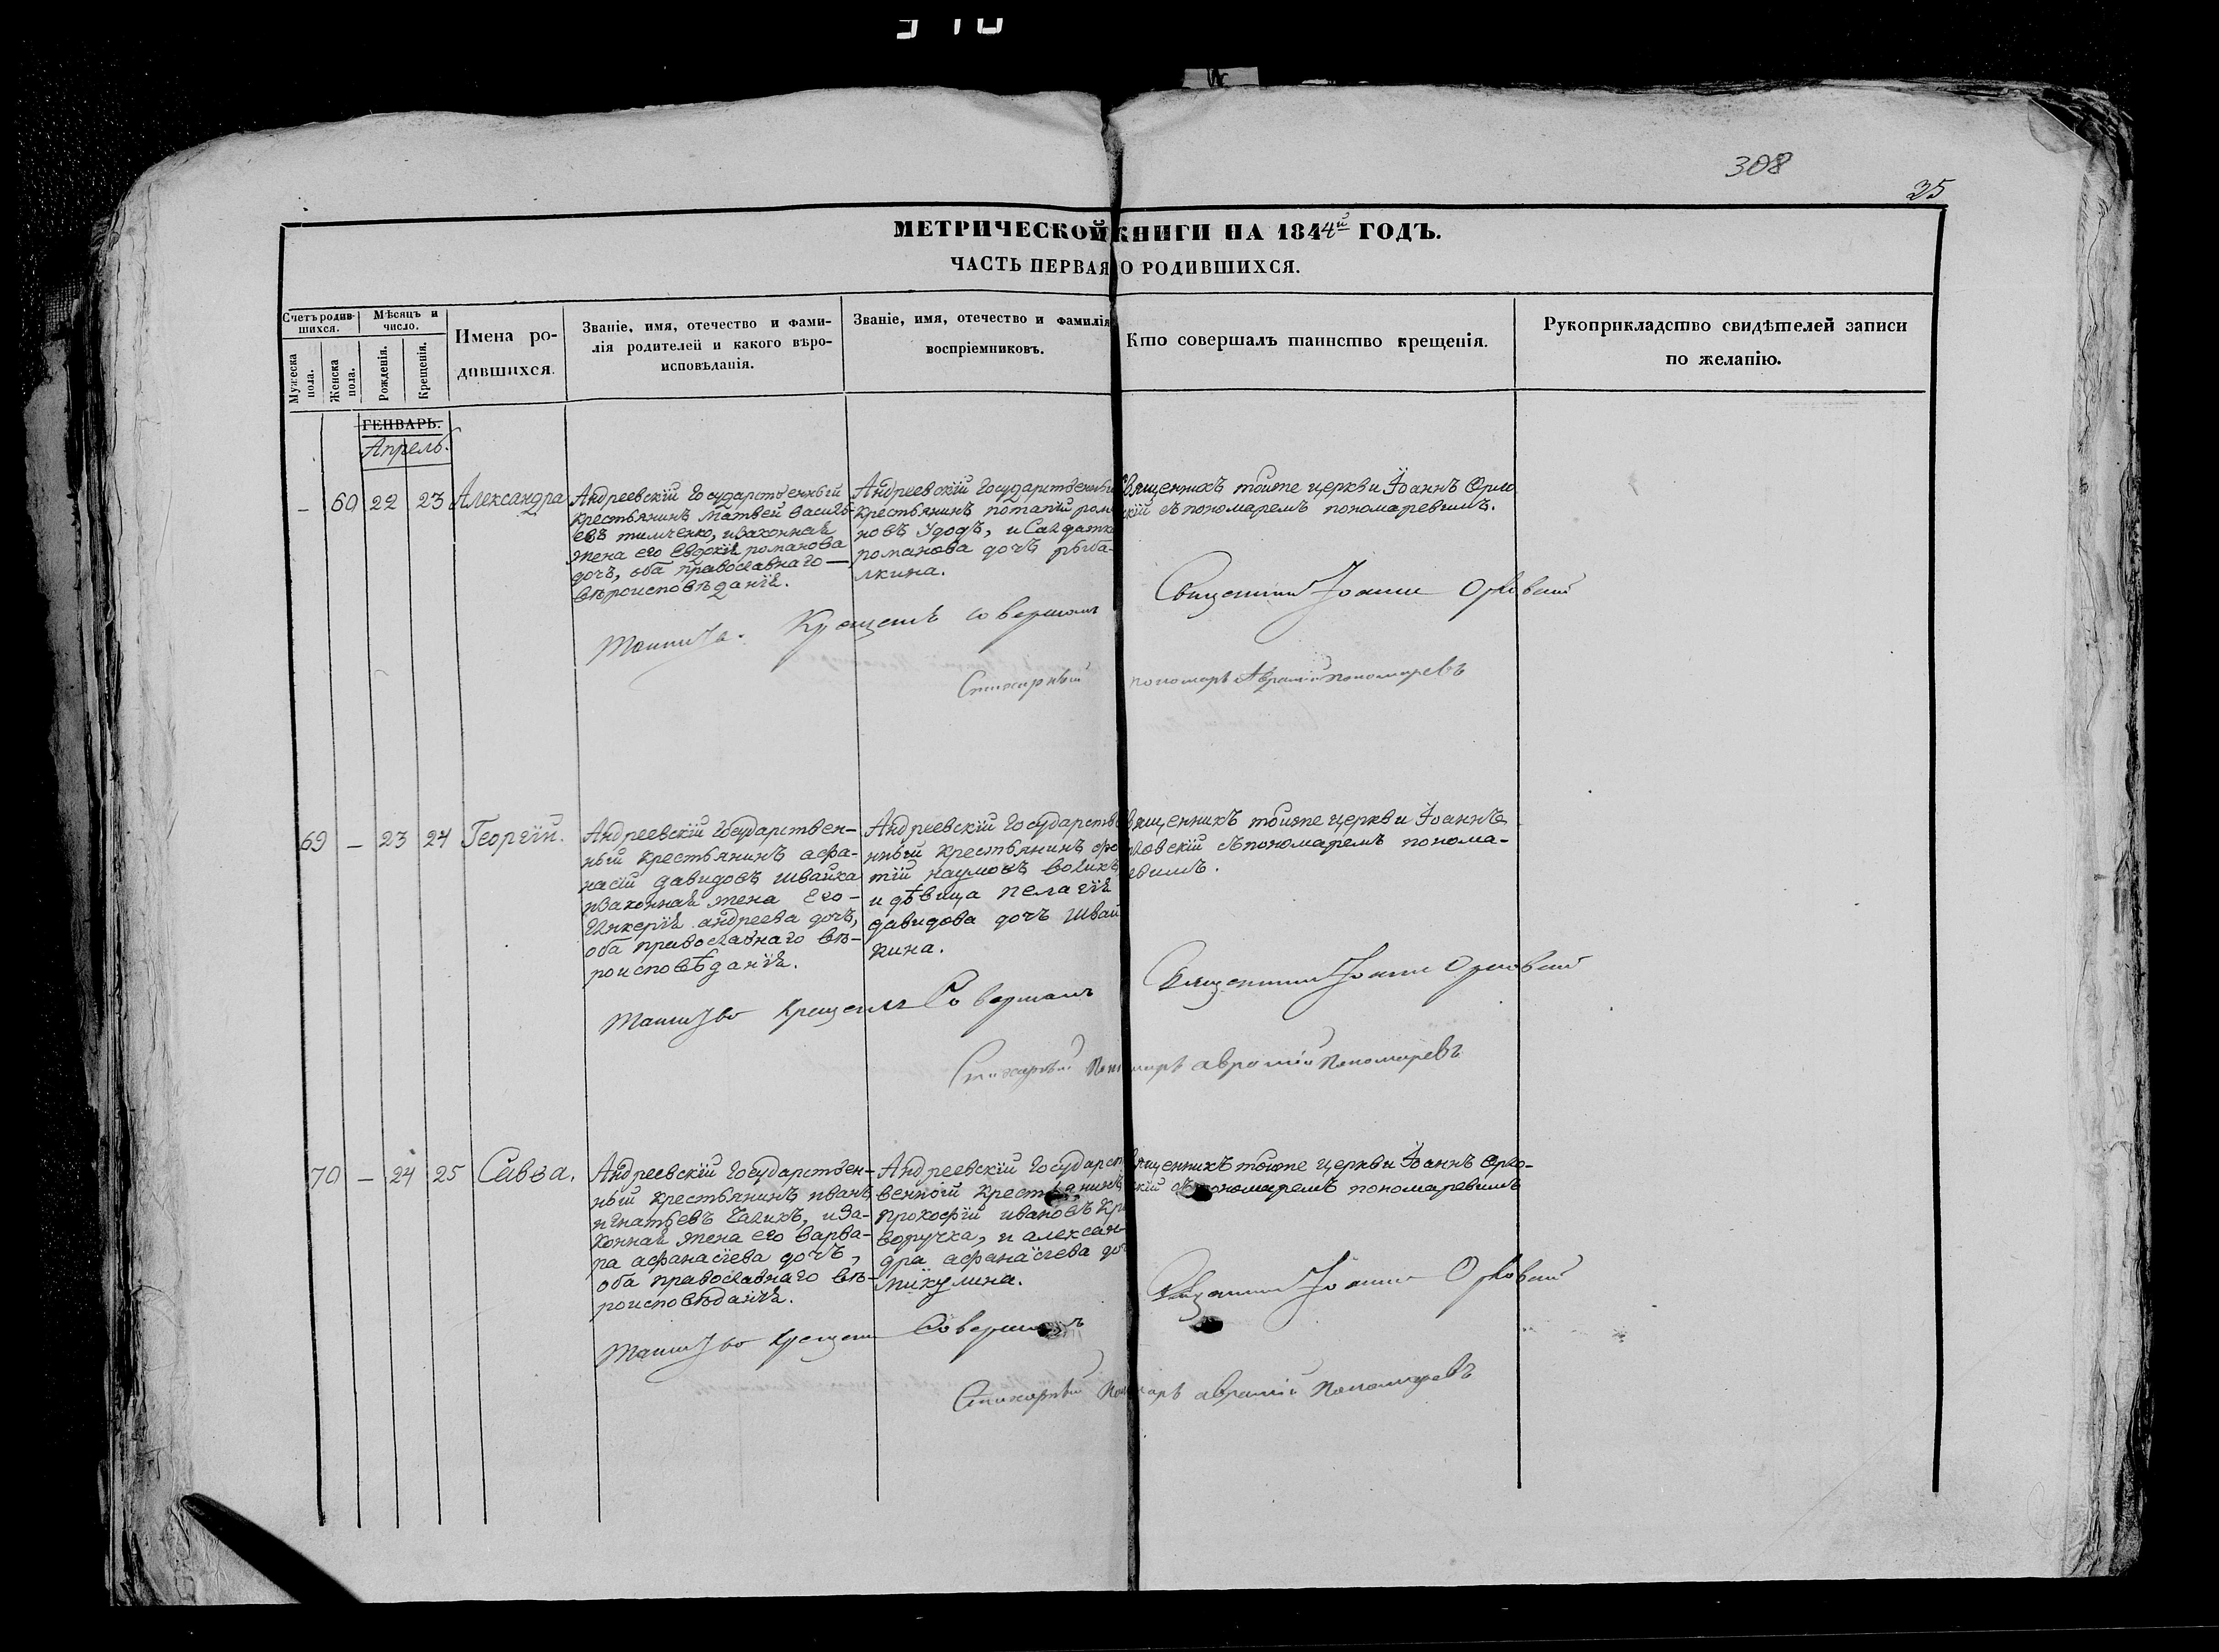 308
35
МЕТРИЧЕСКОЙ КНИГИ НА 1844й ГОДЪ.
ЧАСТЬ ПЕРВАЯ О РОДИВШИХСЯ.
Счетъ родив-
шихся.
Мужеска
пола.
Женска
пола.
Мѣсяцъ и
число.
Рожденія.
Крещенія.
Имена ро-
дившихся.
Званіе, имя, отечество и фами-
лія родителей и какого вѣро-
исповѣданія.
Званіе, имя, отечество и фамилія
воспріемниковъ.
Кто совершалъ таинство крещенія.
Рукоприкладство свидѣтелей записи
по желанію.
ГЕНВАРЬ.
Апрель.
– 60 22 23 Александра
Андреевскій Государственный
крестьянинъ Матвей Василь-
евъ тимченко, изаконная
жена его Евдокія романова
дочъ, оба православнаго —
вѣроисповѣданія.
Андреевскій Государственный
крестьянинъ потапій ром
новъ Удодъ, и Салдатка
романова дочъ рыба-
лкина.
Священникъ тойже церкви Іоаннъ Орло
скій съ пономаремъ пономаревимъ.
Крещенія совершалъ Священникъ Іоаннъ Орловскій
Стихарный пономарь Аврамій Пономаревъ
69 – 23 24 Георгій.
Андреевскій Государствен-
ный крестьянинъ афа-
насій давидовъ швайка
изаконная жена Его —
Гликерія андреева дочъ,
оба православнаго вѣ-
роисповѣданія.
Андреевскій Государстве
нный крестьянинъ фро
тій наумовъ воликъ
и дѣвица пелагія
давидова дочъ Швай
кина.
Священникъ тойже церкви Іоаннъ
рловскій съ пономаремъ понома-
евимъ.
Таинство крещенія Совершалъ Священникъ Іоаннъ Орловскій
Стихарный Пономарь аврамій Пономаревъ
70 – 24 25 Савва.
Андреевскій Государствен-
ный крестьянинъ иванъ
игнатьевъ Галихъ, иза-
конная жена его варва-
ра афанасіева дочъ,
оба православнаго вѣ-
роисповѣданія.
Андреевскій Государст
венной крестьянинъ
прокофій ивановъ Кри
воручка, и алексан-
дра афанасіева доч
микулина.
Священникъ тойже церкви Іоаннъ Орло-
скій съ пономаремъ пономаревимъ
Таинство крещенія Совершалъ Священникъ Іоаннъ Орловскій
Стихарный Пономарь аврамій Пономаревъ